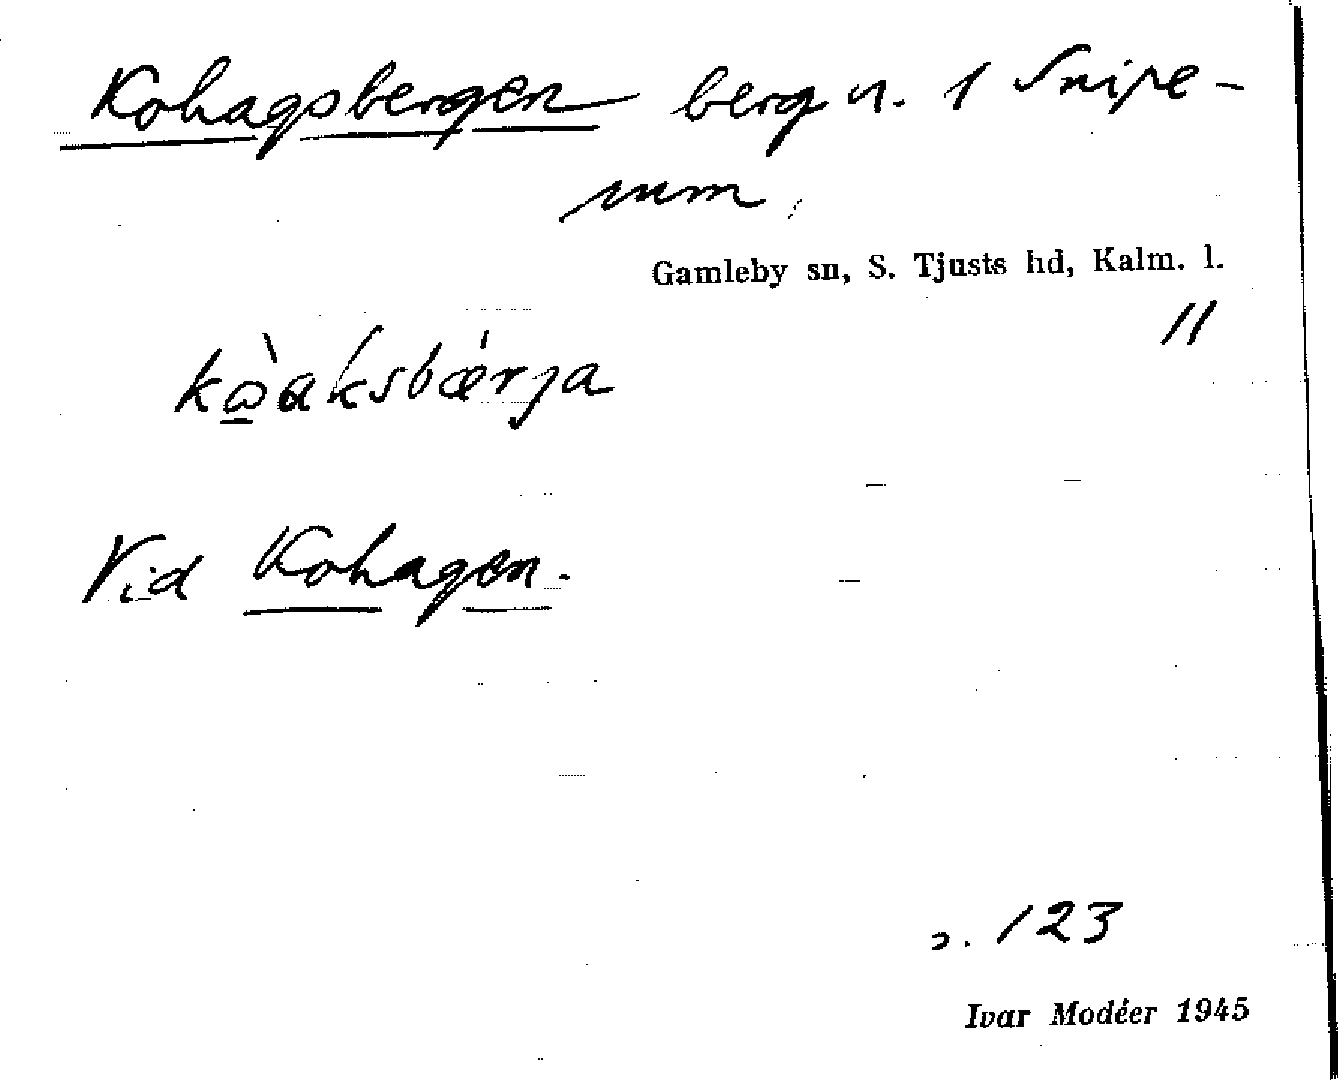 Kohagsbergen berg n. 1 Snipe-
rum.
Gamleby sn, S. Tjusts hd, Kalm. l.
11
Vid Kohagen.
s. 123
Ivar Modéer 1945